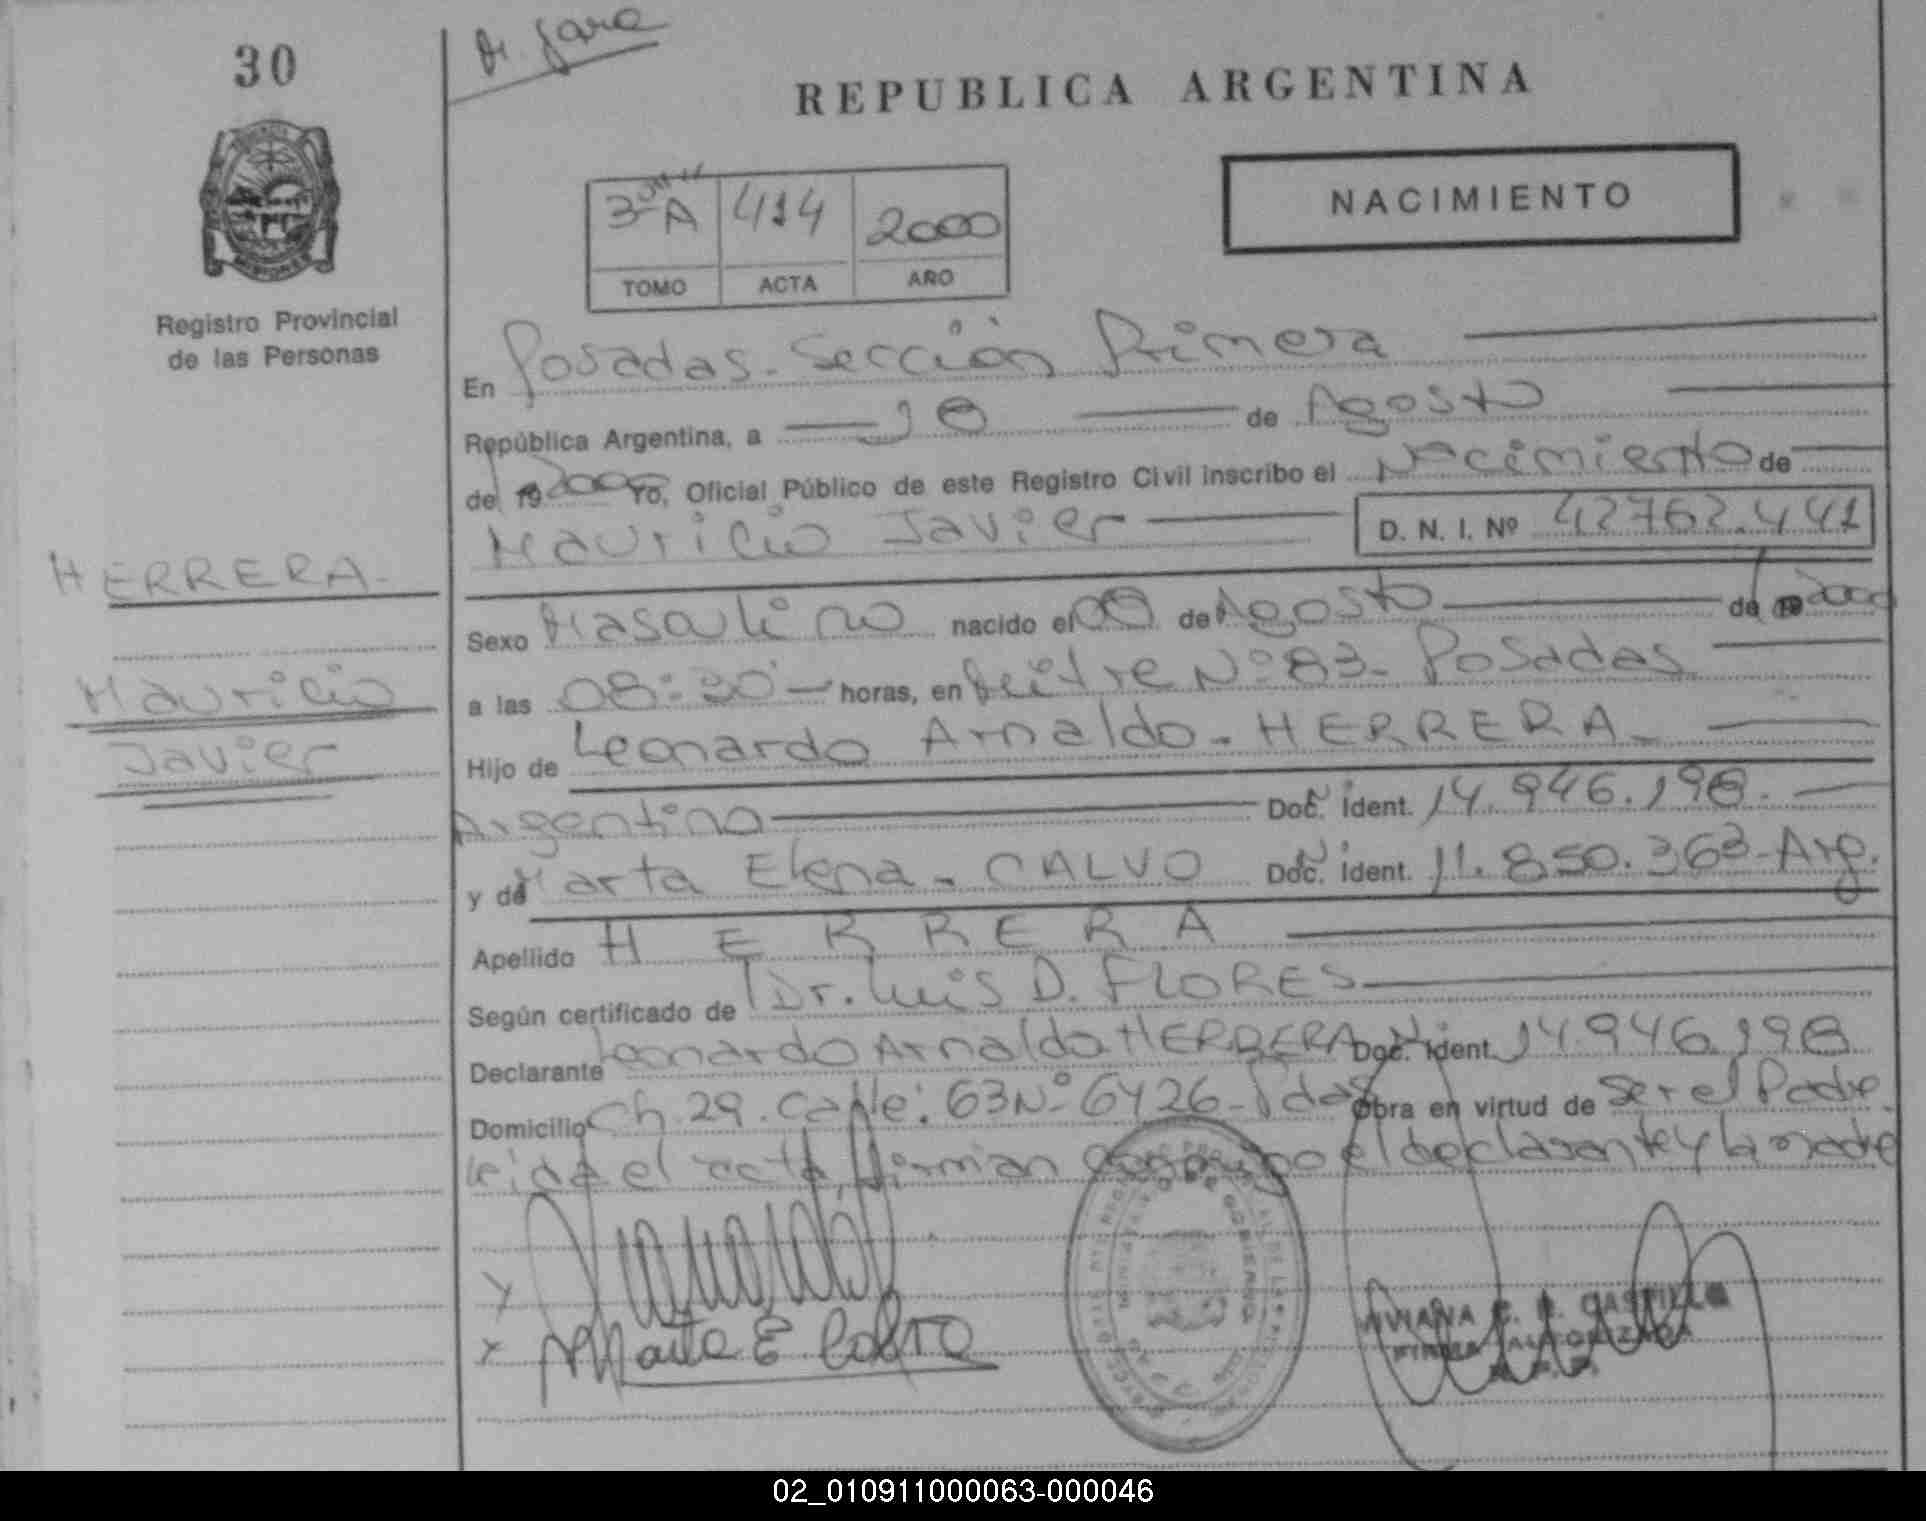 30
REPUBLICA ARGENTINA
NACIMIENTO
3 A 414 2000
TOMO ACTA AÑO
Registro Provincial
de las Personas
En Posadas - Sección Primera
República Argentina, a 10 de Agosto
de 19 2000 Yo, Oficial Público de este Registro Civil inscribo el Nacimiento de
Mauricio Javier D. N. I. Nº 42762.441
HERRERA
Mauricio
Javier
Sexo Masculino nacido el 08 de Agosto de 19 2000
a las horas, en Mitre Nº 83 - Posadas
Hijo de Leonardo Arnaldo - HERRERA
Argentino Doc. Ident. 14.946.198
y de Marta Elena - CALVO Doc. Ident. 11.850.363 - Arg.
Apellido HERRERA
Según certificado de Dr. Luis D. FLORES
Declarante Leonardo Arnaldo HERRERA Doc. Ident. 14946198
Domicilio Ch. 29. Calle: 63 Nº 6426 - Pdas Obra en virtud de Ser el Padre.
Leida el acta, firman conmigo el declarante y la madre
VIVIANA CASTILLO
FIRMA AUTORIZADA
02_010911000063-000046